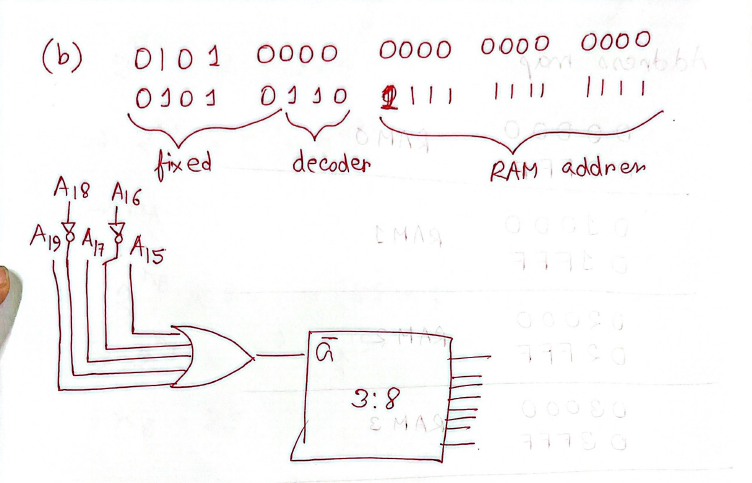 (b) 0101 0000 0000 0000 0000
0101 0110 1111 1111 1111
fixed decoder RAM address
A18 A16
A19 A17 A15
G̅
3:8